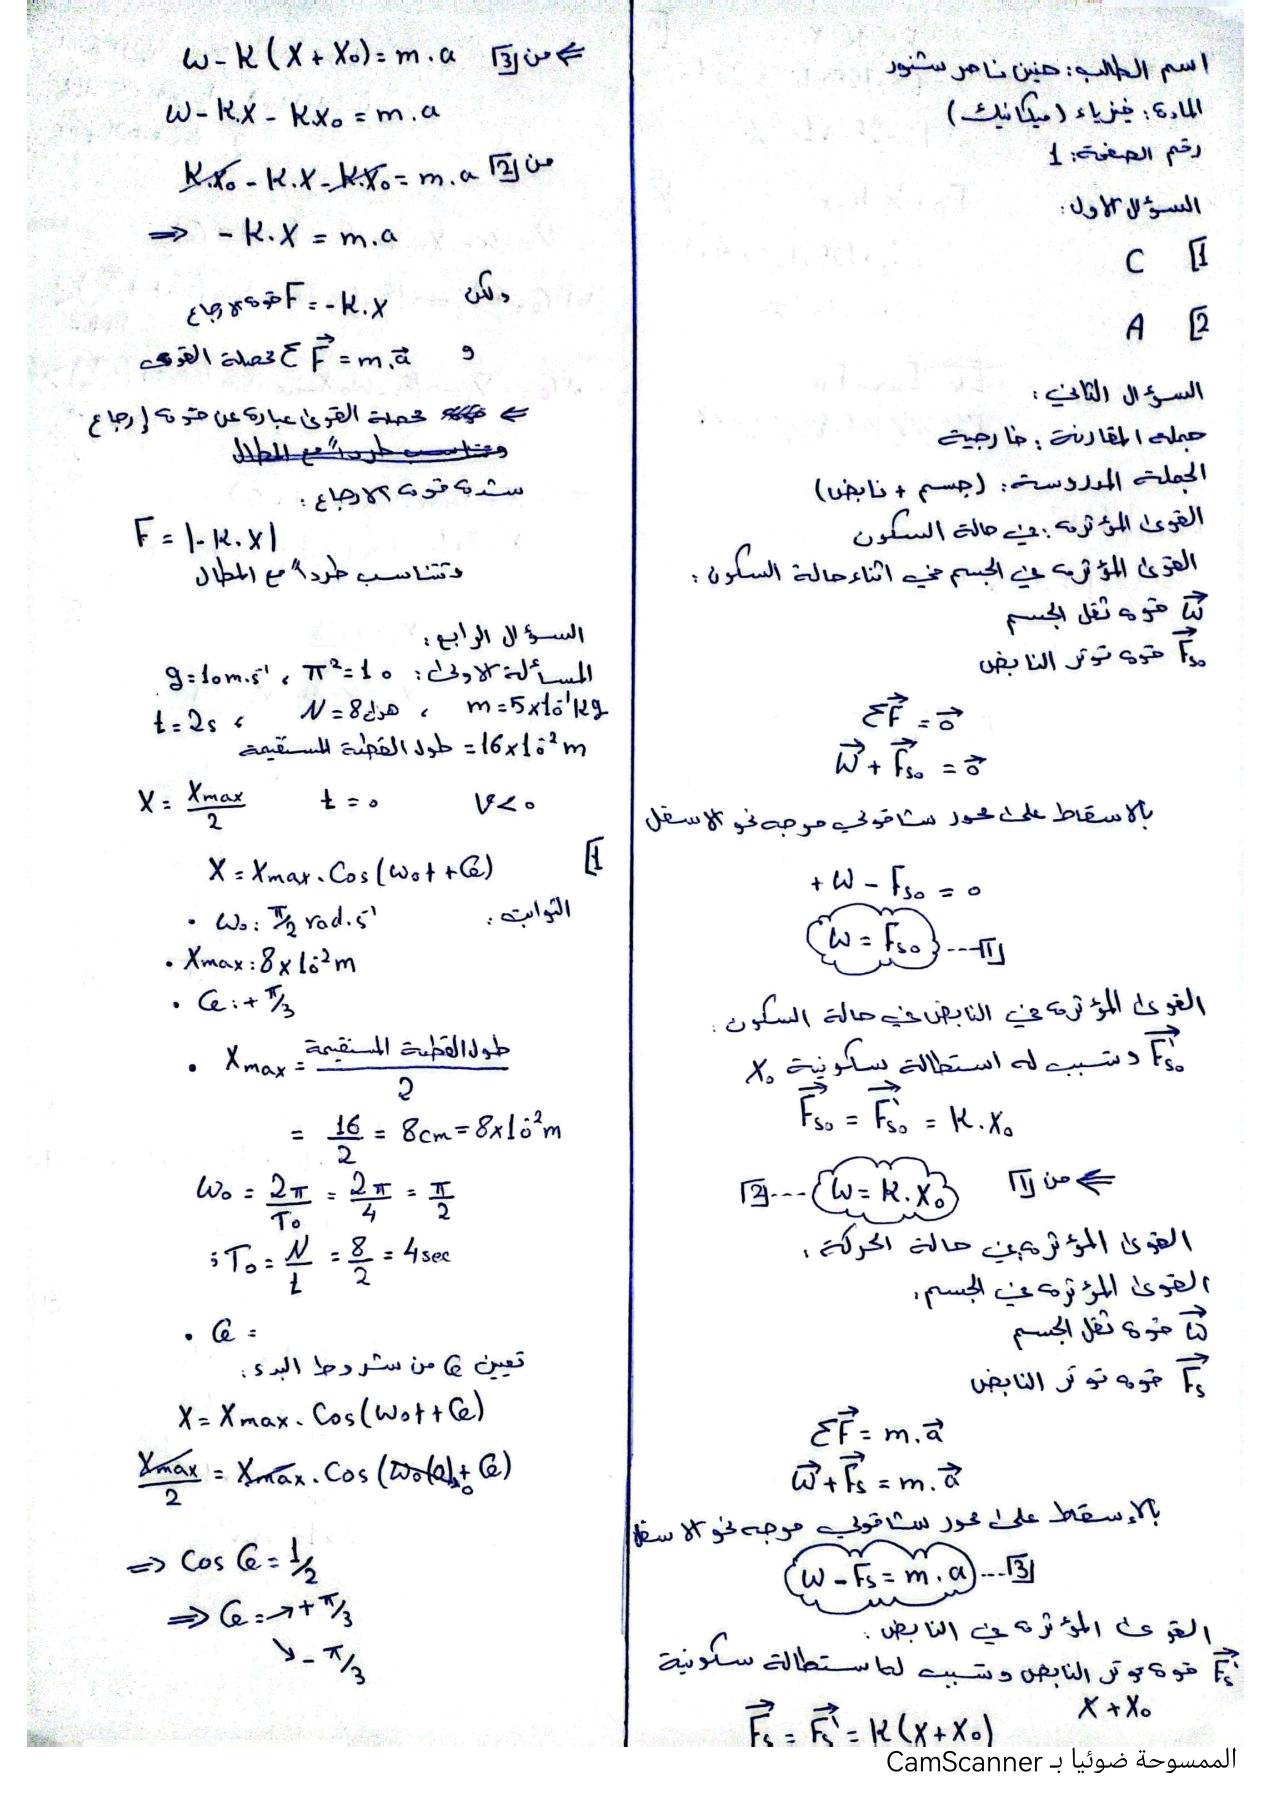 اسم الطالب: حنين ناصر شنور
المادة: فيزياء (ميكانيك)
رقم الصفحة: 1
السؤال الاول:
1] C
2] A
السؤال الثاني:
جملة المقارنة: خارجية
الجملة المدروسة: (جسم + نابض)
القوى المؤثرة: في حالة السكون
القوى المؤثرة في الجسم في اثناء حالة السكون:
W⃗ قوة ثقل الجسم
F⃗s₀ قوة توتر النابض
ΣF⃗ = 0⃗
W⃗ + F⃗s₀ = 0⃗
بالاسقاط على محور شاقولي موجه نحو الاسفل
+W - Fs₀ = 0
W = Fs₀ ---[1]
القوى المؤثرة في النابض في حالة السكون:
F⃗'s₀ وتسبب له استطالة سكونية X₀
F⃗s₀ = F⃗'s₀ = K.X₀
⇐ من [1] W = K.X₀ ---[2]
القوى المؤثرة في حالة الحركة:
القوى المؤثرة في الجسم:
W⃗ قوة ثقل الجسم
F⃗s قوة توتر النابض
ΣF⃗ = m.a⃗
W⃗ + F⃗s = m.a⃗
بالإسقاط على محور شاقولي موجه نحو الاسفل
W - Fs = m.a ---[3]
القوى المؤثرة في النابض:
F⃗'s قوة توتر النابض وتسبب لها استطالة سكونية
X + X₀
F⃗s = F⃗'s = K(X+X₀)
⇐ من [3] W - K(X+X₀) = m.a
W - K.X - KX₀ = m.a
من [2] K.X₀ - K.X - K.X₀ = m.a
⇒ - K.X = m.a
ولكن F = -K.X قوة الارجاع
و ΣF⃗ = m.a⃗ محصلة القوى
⇐ محصلة القوى عبارة عن قوة إرجاع
وتتناسب طرداً مع المطال
شدة قوة الارجاع:
F = |-K.X|
وتتناسب طرداً مع المطال
السؤال الرابع:
المسألة الاولى: π² = 10 ، g = 10 m.s⁻¹
m = 5×10⁻¹ kg ، هزة N = 8 ، t = 2s
طول القطعة المستقيمة = 16×10⁻² m
X = Xmax/2 t = 0 V < 0
1] X = Xmax.Cos(ω₀t + φ)
الثوابت: • ω₀: π/2 rad.s⁻¹
• Xmax: 8×10⁻² m
• φ: + π/3
• Xmax = طول القطعة المستقيمة / 2
= 16/2 = 8cm = 8×10⁻² m
ω₀ = 2π/T₀ = 2π/4 = π/2
; T₀ = N/t = 8/2 = 4sec
• φ =
تعيين φ من شروط البدء:
X = Xmax.Cos(ω₀t + φ)
Xmax/2 = Xmax.Cos(ω₀(0) + φ)
⇒ Cos φ = 1/2
⇒ φ = → + π/3
↘ - π/3
الممسوحة ضوئيا بـ CamScanner